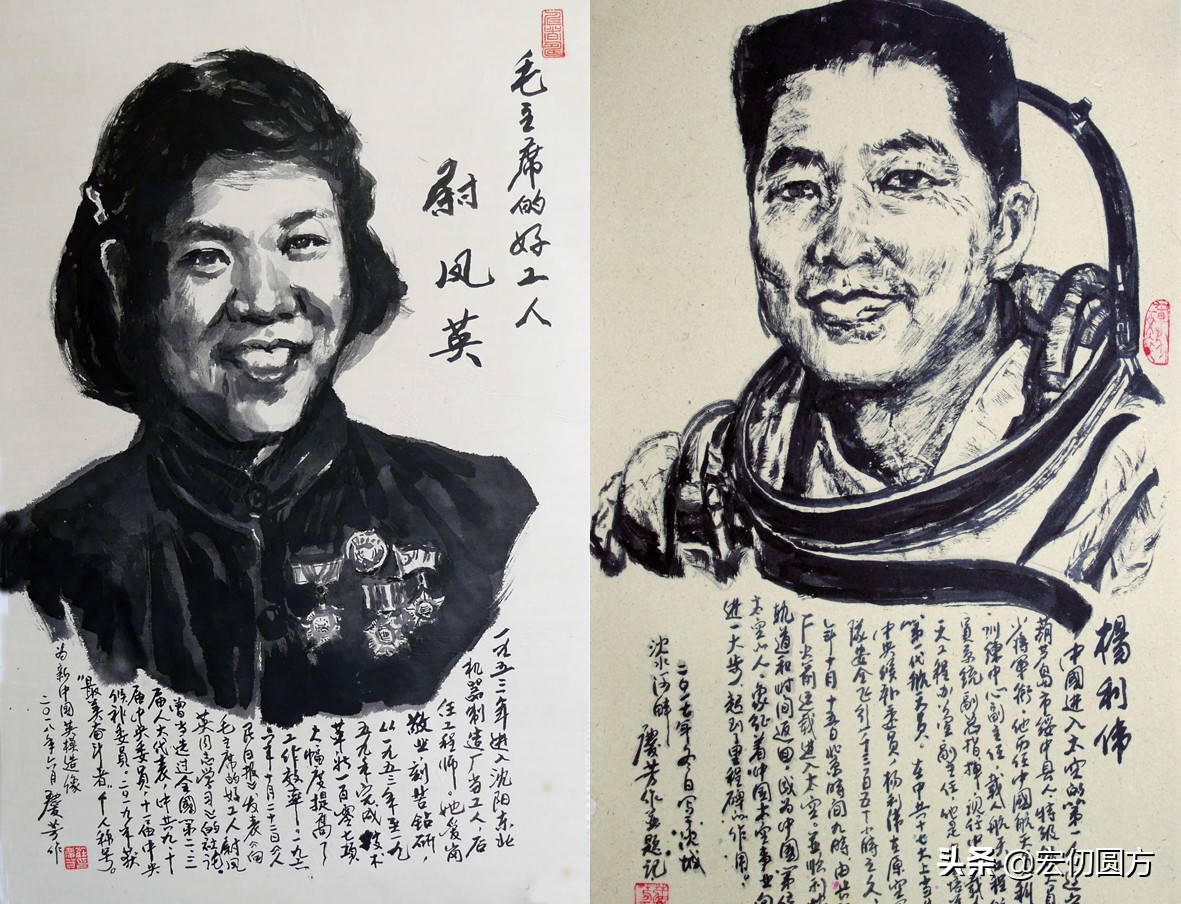 毛主席的好工人
尉凤英
一九五三年进入沈阳东北
机器制造厂当工人,后
任工程师。她爱岗
敬业,刻苦钻研,
从一九五三年至一九
五九年完成技术
革新一百零七项
大幅度提高了
工作效率。一九六
年十月二十二日人
民日报发表《向
毛主席的好工人尉凤
英同志学习》的社论。
曾当选过全国第二三
届人大代表,中共九十
届中央委员,十一届中央
候补委员。二〇一九年获
"最美奋斗者"个人称号。
为新中国英模造像
二〇一八年六月 庆芳作
楊利伟
中國進入太空的第一
葫芦島市綏中县人,特级
少將軍銜,他历任中國航天
訓練中心副主任,載人航天工程
員系統副总指揮,現任中國載人
天工程办公室副主任,他是
第一代航天員。在中共十七大上当
中央候补委員,楊利伟在原空
隊安全飞行一千三百五十小時
年十月十五日北京時間九時,由
厂火箭运载進入太空,並順利
軌道和时间返回,成为中國第一位
太空的人,象征着中国太空事业向
進一大步,起到里程碑的作用。
二〇一七年冬日寫于沈城
沈水河畔 慶芳作並題記
头条 @宏仞圆方